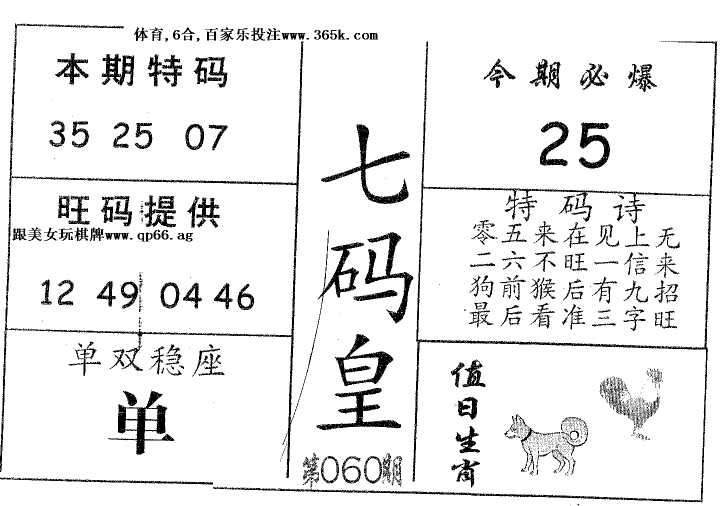 体育,6合,百家乐投注www.365k.com
本期特码
35 25 07
旺码提供
跟美女玩棋牌www.qp66.ag
12 49 04 46
单双稳座
单
七码皇
第060期
今期必爆
25
特码诗
零五来在见上无
二六不旺一信来
狗前猴后有九招
最后看准三字旺
值日生肖